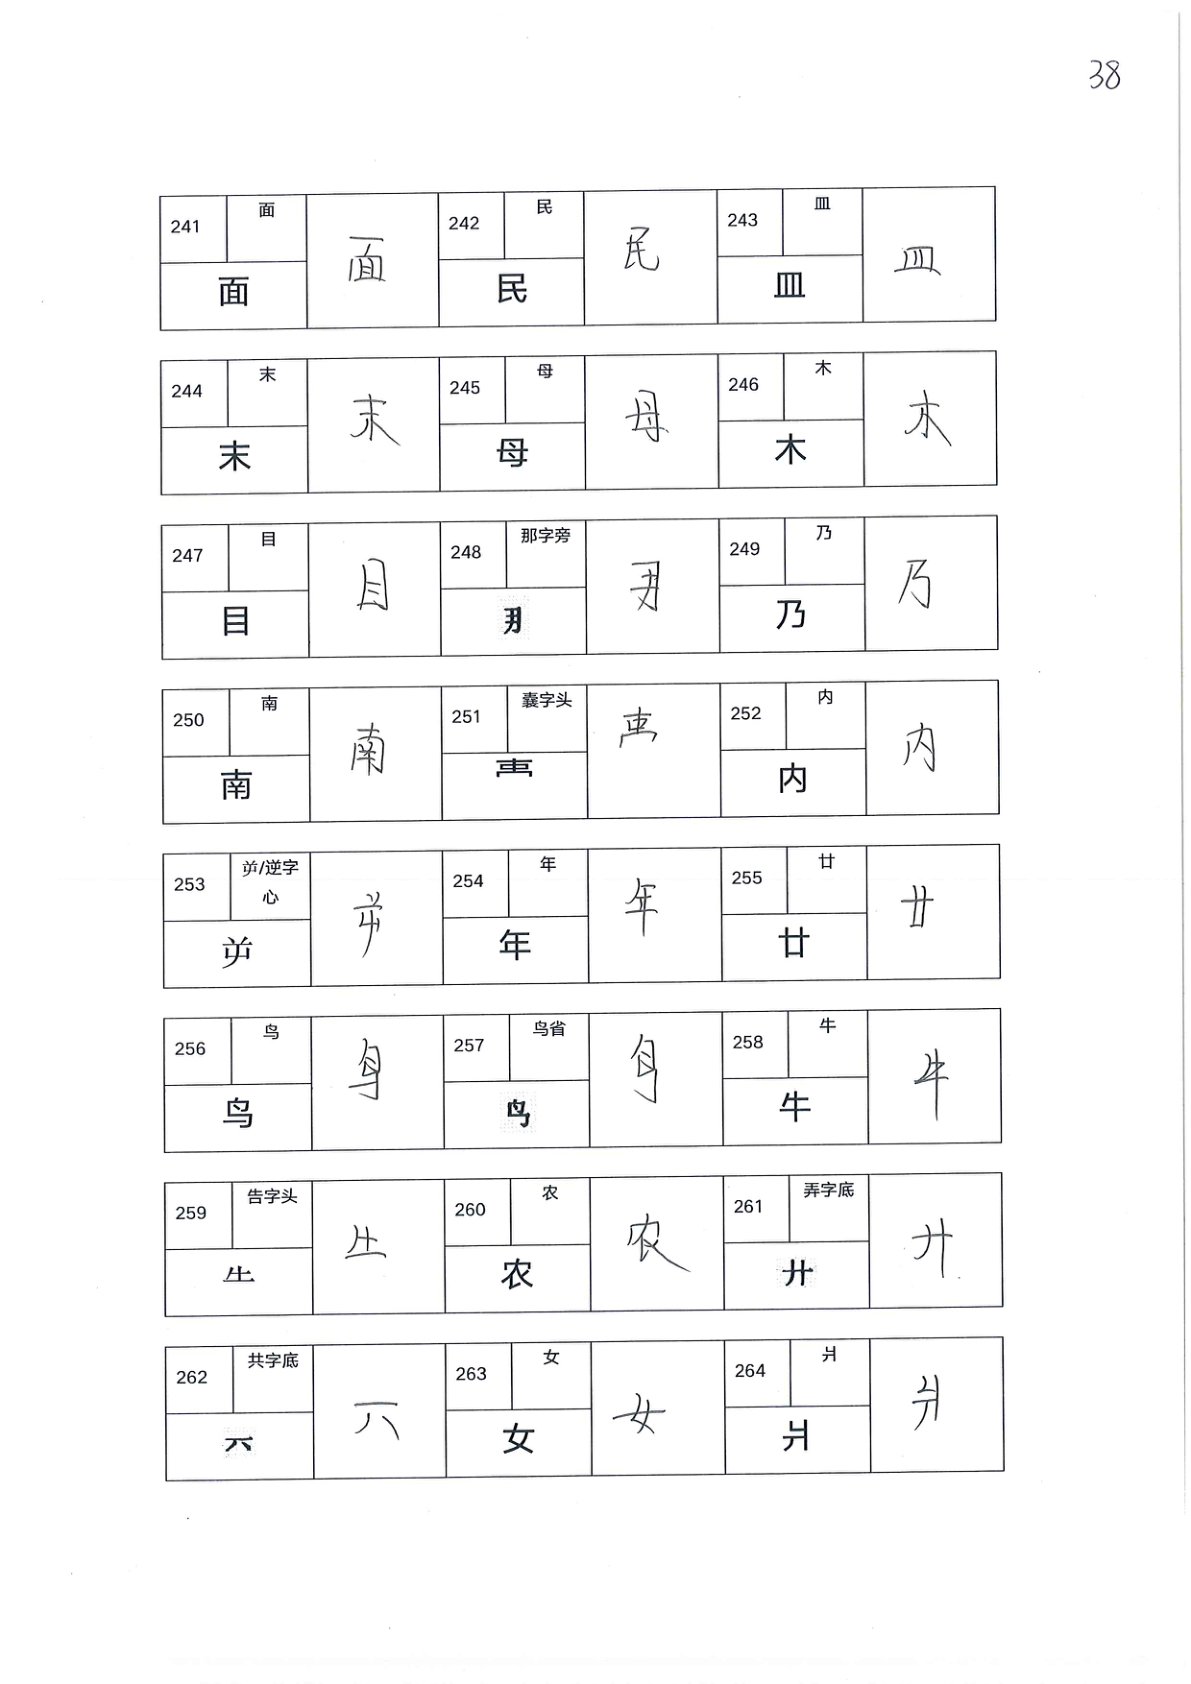 38
241 面 面 242 民 民 243 皿 皿
面 民 皿
244 末 末 245 母 母 246 木 木
末 母 木
247 目 目 248 那字旁 249 乃 乃
目 乃
250 南 南 251 囊字头 252 内 内
南 内
253 屰/逆字心 屰 254 年 年 255 廿 廿
屰 年 廿
256 鸟 257 鸟省 258 牛 牛
鸟 牛
259 告字头 260 农 农 261 弄字底 廾
农 廾
262 共字底 263 女 女 264 爿 爿
女 爿